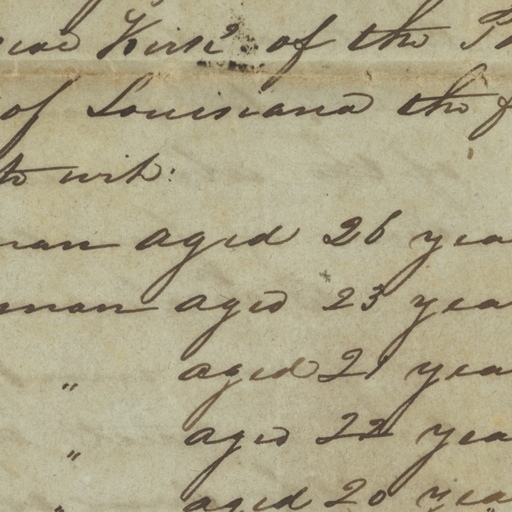 Kirk of the
of Louisiana the
to wit:
man aged 26 yea
man aged 23 yea
„ aged 21 yea
„ aged 22 yea
„ aged 20 yea